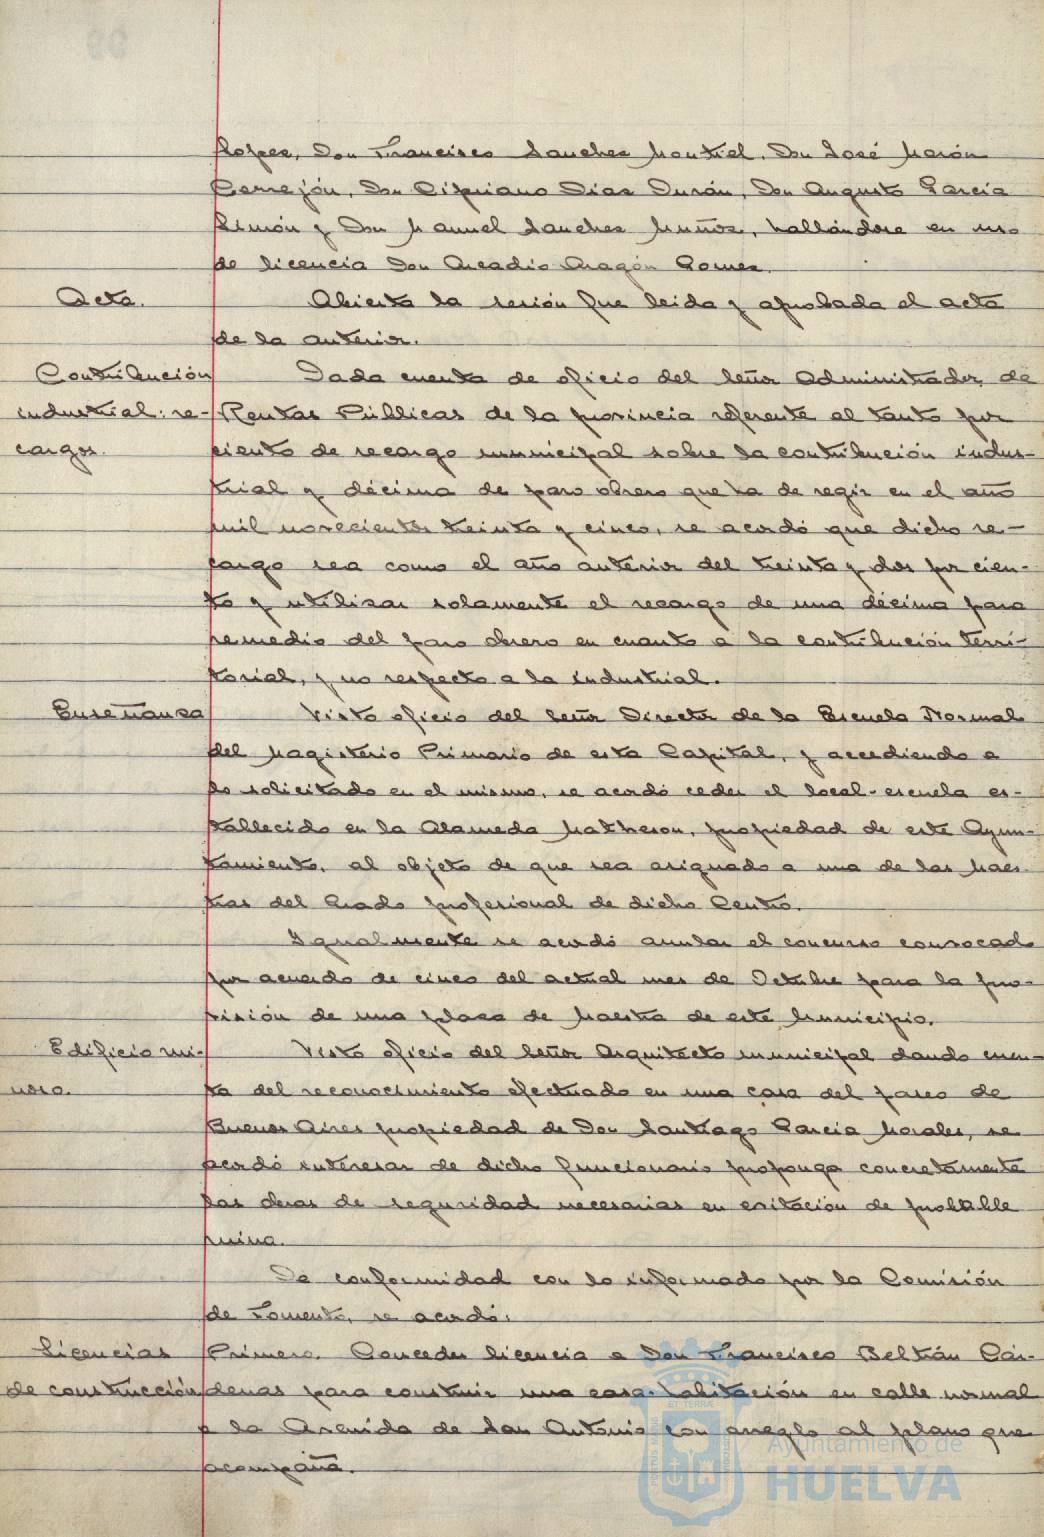 López, Don Francisco Sanchez Montiel, Don José Marón
Cerrejón, Don Cipriano Dias Durán, Don Augusto García
Simón y Don Manuel Sanchez Muñoz, hallándose en uso
de licencia Don Arcadio Aragón Gomez.
Acta.
Abierta la sesión fue leida y aprobada el acta
de la anterior.
Contribución
industrial: re-
cargos.
Dada cuenta de oficio del Señor Administrador de
Rentas Públicas de la provincia referente al tanto por
ciento de recargo municipal sobre la contribución indus-
trial y décima de paro obrero que ha de regir en el año
mil novecientos treinta y cinco, se acordó que dicho re-
cargo sea como el año anterior del treinta y dos por cien-
to y utilizar solamente el recargo de una décima para
remedio del paro obrero en cuanto a la contribución terri-
torial, y no respecto a la industrial.
Enseñanza
Visto oficio del Señor Director de la Escuela Normal
del Magisterio Primario de esta Capital, y accediendo a
lo solicitado en el mismo, se acordó ceder el local-escuela es-
tablecido en la Alameda Matheson, propiedad de este Ayun-
tamiento, al objeto de que sea asignado a una de las Maes-
tras del Grado profesional de dicho Centro.
Igualmente se acordó anular el concurso convocado
por acuerdo de cinco del actual mes de Octubre para la pro-
visión de una plaza de Maestra de este Municipio.
Edificio rui-
noso.
Visto oficio del Señor Arquitecto municipal dando cuen-
ta del reconocimiento efectuado en una casa del paseo de
Buenos Aires propiedad de Don Santiago García Morales, se
acordó interesar de dicho funcionario proponga concretamente
las obras de seguridad necesarias en evitación de probable
ruina.
De conformidad con lo informado por la Comisión
de Fomento, se acordó:
Licencias
de construcción
Primero. Conceder licencia a Don Francisco Beltrán Cár-
denas para construir una casa-habitación en calle normal
a la Avenida de San Antonio con arreglo al plano que
acompaña.
Ayuntamiento de
HUELVA